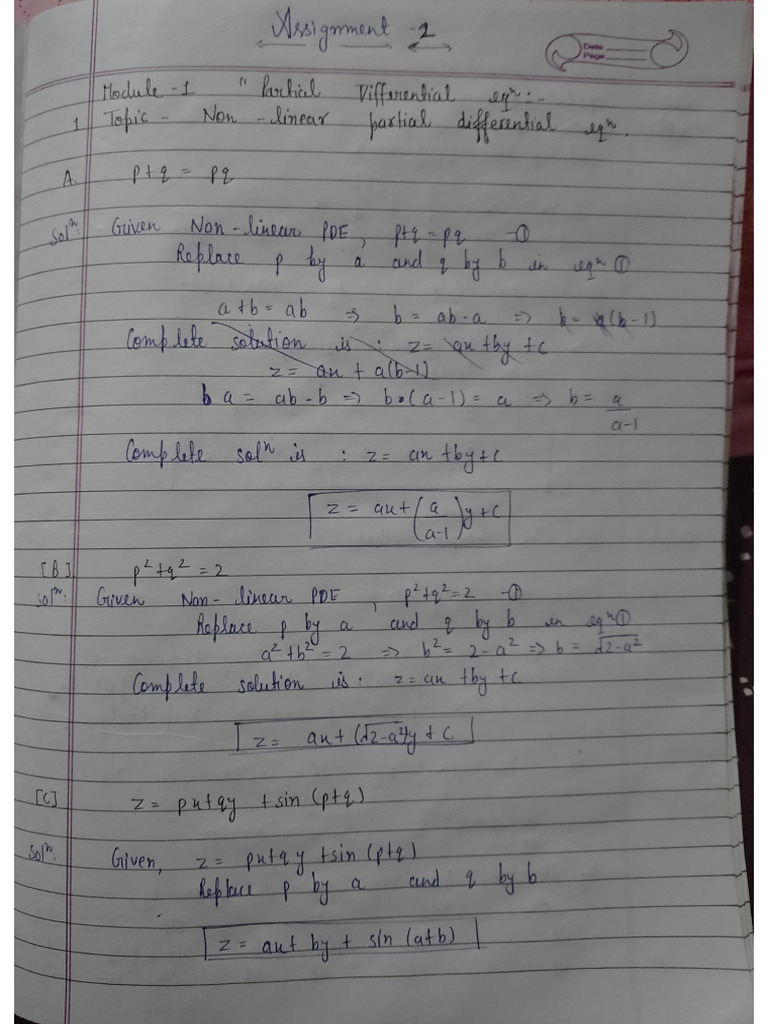 Assignment -2
Date
Page
Module -1 " Partial Differential eqⁿ:-
1 Topic - Non -linear partial differential eqⁿ.
A. p+q = pq
Solⁿ: Given Non-linear PDE, p+q=pq -①
Replace p by a and q by b in eqⁿ ①
a+b = ab ⇒ b = ab-a ⇒ b = a(b-1)
Complete solution is : z= ax+by+c
z = ax + a(b-1)
a = ab-b ⇒ b•(a-1) = a ⇒ b= a/(a-1)
Complete solⁿ is : z= ax+by+c
z = ax+(a/(a-1))y+c
[B]. p²+q²=2
Solⁿ: Given Non-linear PDE, p²+q²=2 -①
Replace p by a and q by b in eqⁿ①
a²+b²=2 ⇒ b²= 2-a² ⇒ b= √2-a²
Complete solution is: z=ax+by+c
z= ax+(√2-a²)y+c
[C] z= px+qy +sin (p+q)
Solⁿ: Given, z= px+qy +sin (p+q)
Replace p by a and q by b
z= ax+ by + sin (a+b)